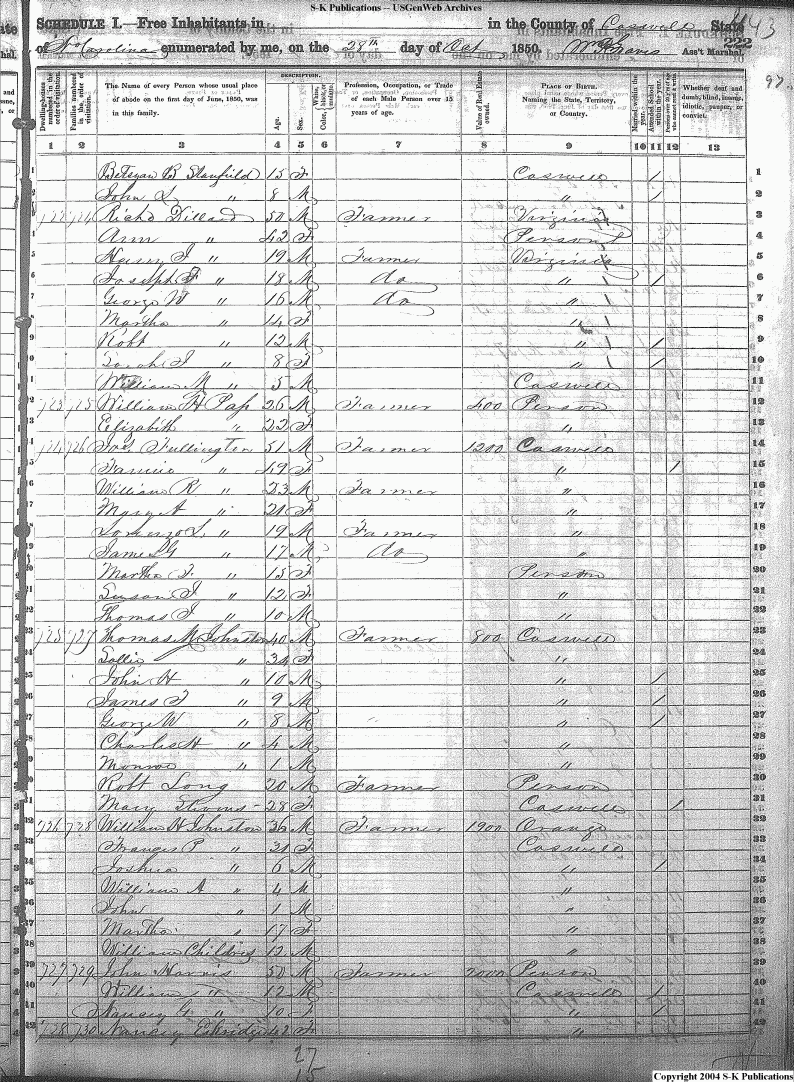 S-K Publications -- USGenWeb Archives
SCHEDULE I.—Free Inhabitants in in the County of Caswell State
of No Carolina enumerated by me, on the 28th day of Oct 1850. Ass't Marshal.
43
222
DESCRIPTION.
Dwelling-houses numbered in the order of visitation.
Families numbered in the order of visitation.
The Name of every Person whose usual place of abode on the first day of June, 1850, was in this family.
Age.
Sex.
Color, White, black, or mulatto.
Profession, Occupation, or Trade of each Male Person over 15 years of age.
Value of Real Estate owned.
PLACE OF BIRTH. Naming the State, Territory, or Country.
Married within the year.
Attended School within the year.
Persons over 20 y'rs of age who cannot read & write.
Whether deaf and dumb, blind, insane, idiotic, pauper, or convict.
1 2 3 4 5 6 7 8 9 10 11 12 13
1 B Stanfield 15 F Caswell / 1
2 John L " 8 M " / 2
3 722 724 Richd Dillard 50 M Farmer Virginia 3
4 Ann " 42 F Person 4
5 " 19 M Farmer Virginia 5
6 Joseph F " 18 M do " / 6
7 George W " 16 M do " 7
8 Martha " 14 F " 8
9 Robt " 12 M " / 9
10 Sarah J " 8 F " / 10
11 William M " 5 M Caswell 11
12 723 725 William H 26 M Farmer 400 Person 12
13 Elizabeth " 22 F " 13
14 724 726 Jas. Fullington 51 M Farmer 1200 Caswell 14
15 " 49 F " / 15
16 William R " 23 M Farmer " 16
17 Mary A " 21 F " 17
18 Lorenzo L. " 19 M Farmer " 18
19 James G " 17 M do " 19
20 Martha F. " 15 F Person 20
21 Susan J " 12 F " 21
22 Thomas J " 10 M " 22
23 725 727 Thomas M Johnston 40 M Farmer 800 Caswell 23
24 Sallie " 34 F " 24
25 John H " 10 M " / 25
26 James F " 9 M " / 26
27 George W " 8 M " / 27
28 Charles H " 4 M " 28
29 Monroe " 1 M " 29
30 Robt Long 20 M Farmer Person 30
31 Mary 28 F Caswell / 31
32 726 728 William H Johnston 36 M Farmer 1900 Orange 32
33 Frances P " 31 F Caswell 33
34 Joshua " 6 M " / 34
35 William A " 4 M " 35
36 John " 1 M " 36
37 Martha " 17 F " 37
38 William Childrey 12 M " 38
39 727 729 John Harris 50 M Farmer 2000 Person 39
40 William " 12 M Caswell / 40
41 Nancy G " 10 F " / 41
42 728 730 Nancy 42 F " 42
27
15
Copyright 2004 S-K Publications